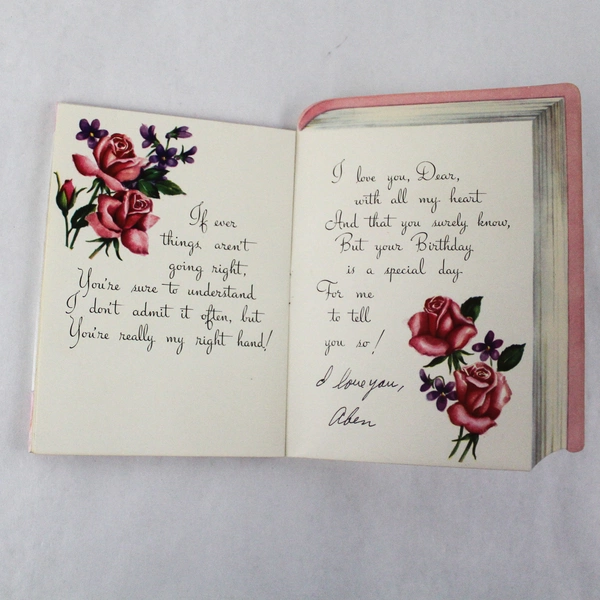 If ever
things aren't
going right,
You're sure to understand
I don't admit it often, but
You're really my right hand!
I love you, Dear,
with all my heart
And that you surely know,
But your Birthday
is a special day
For me
to tell
you so!
I love you,
Aben